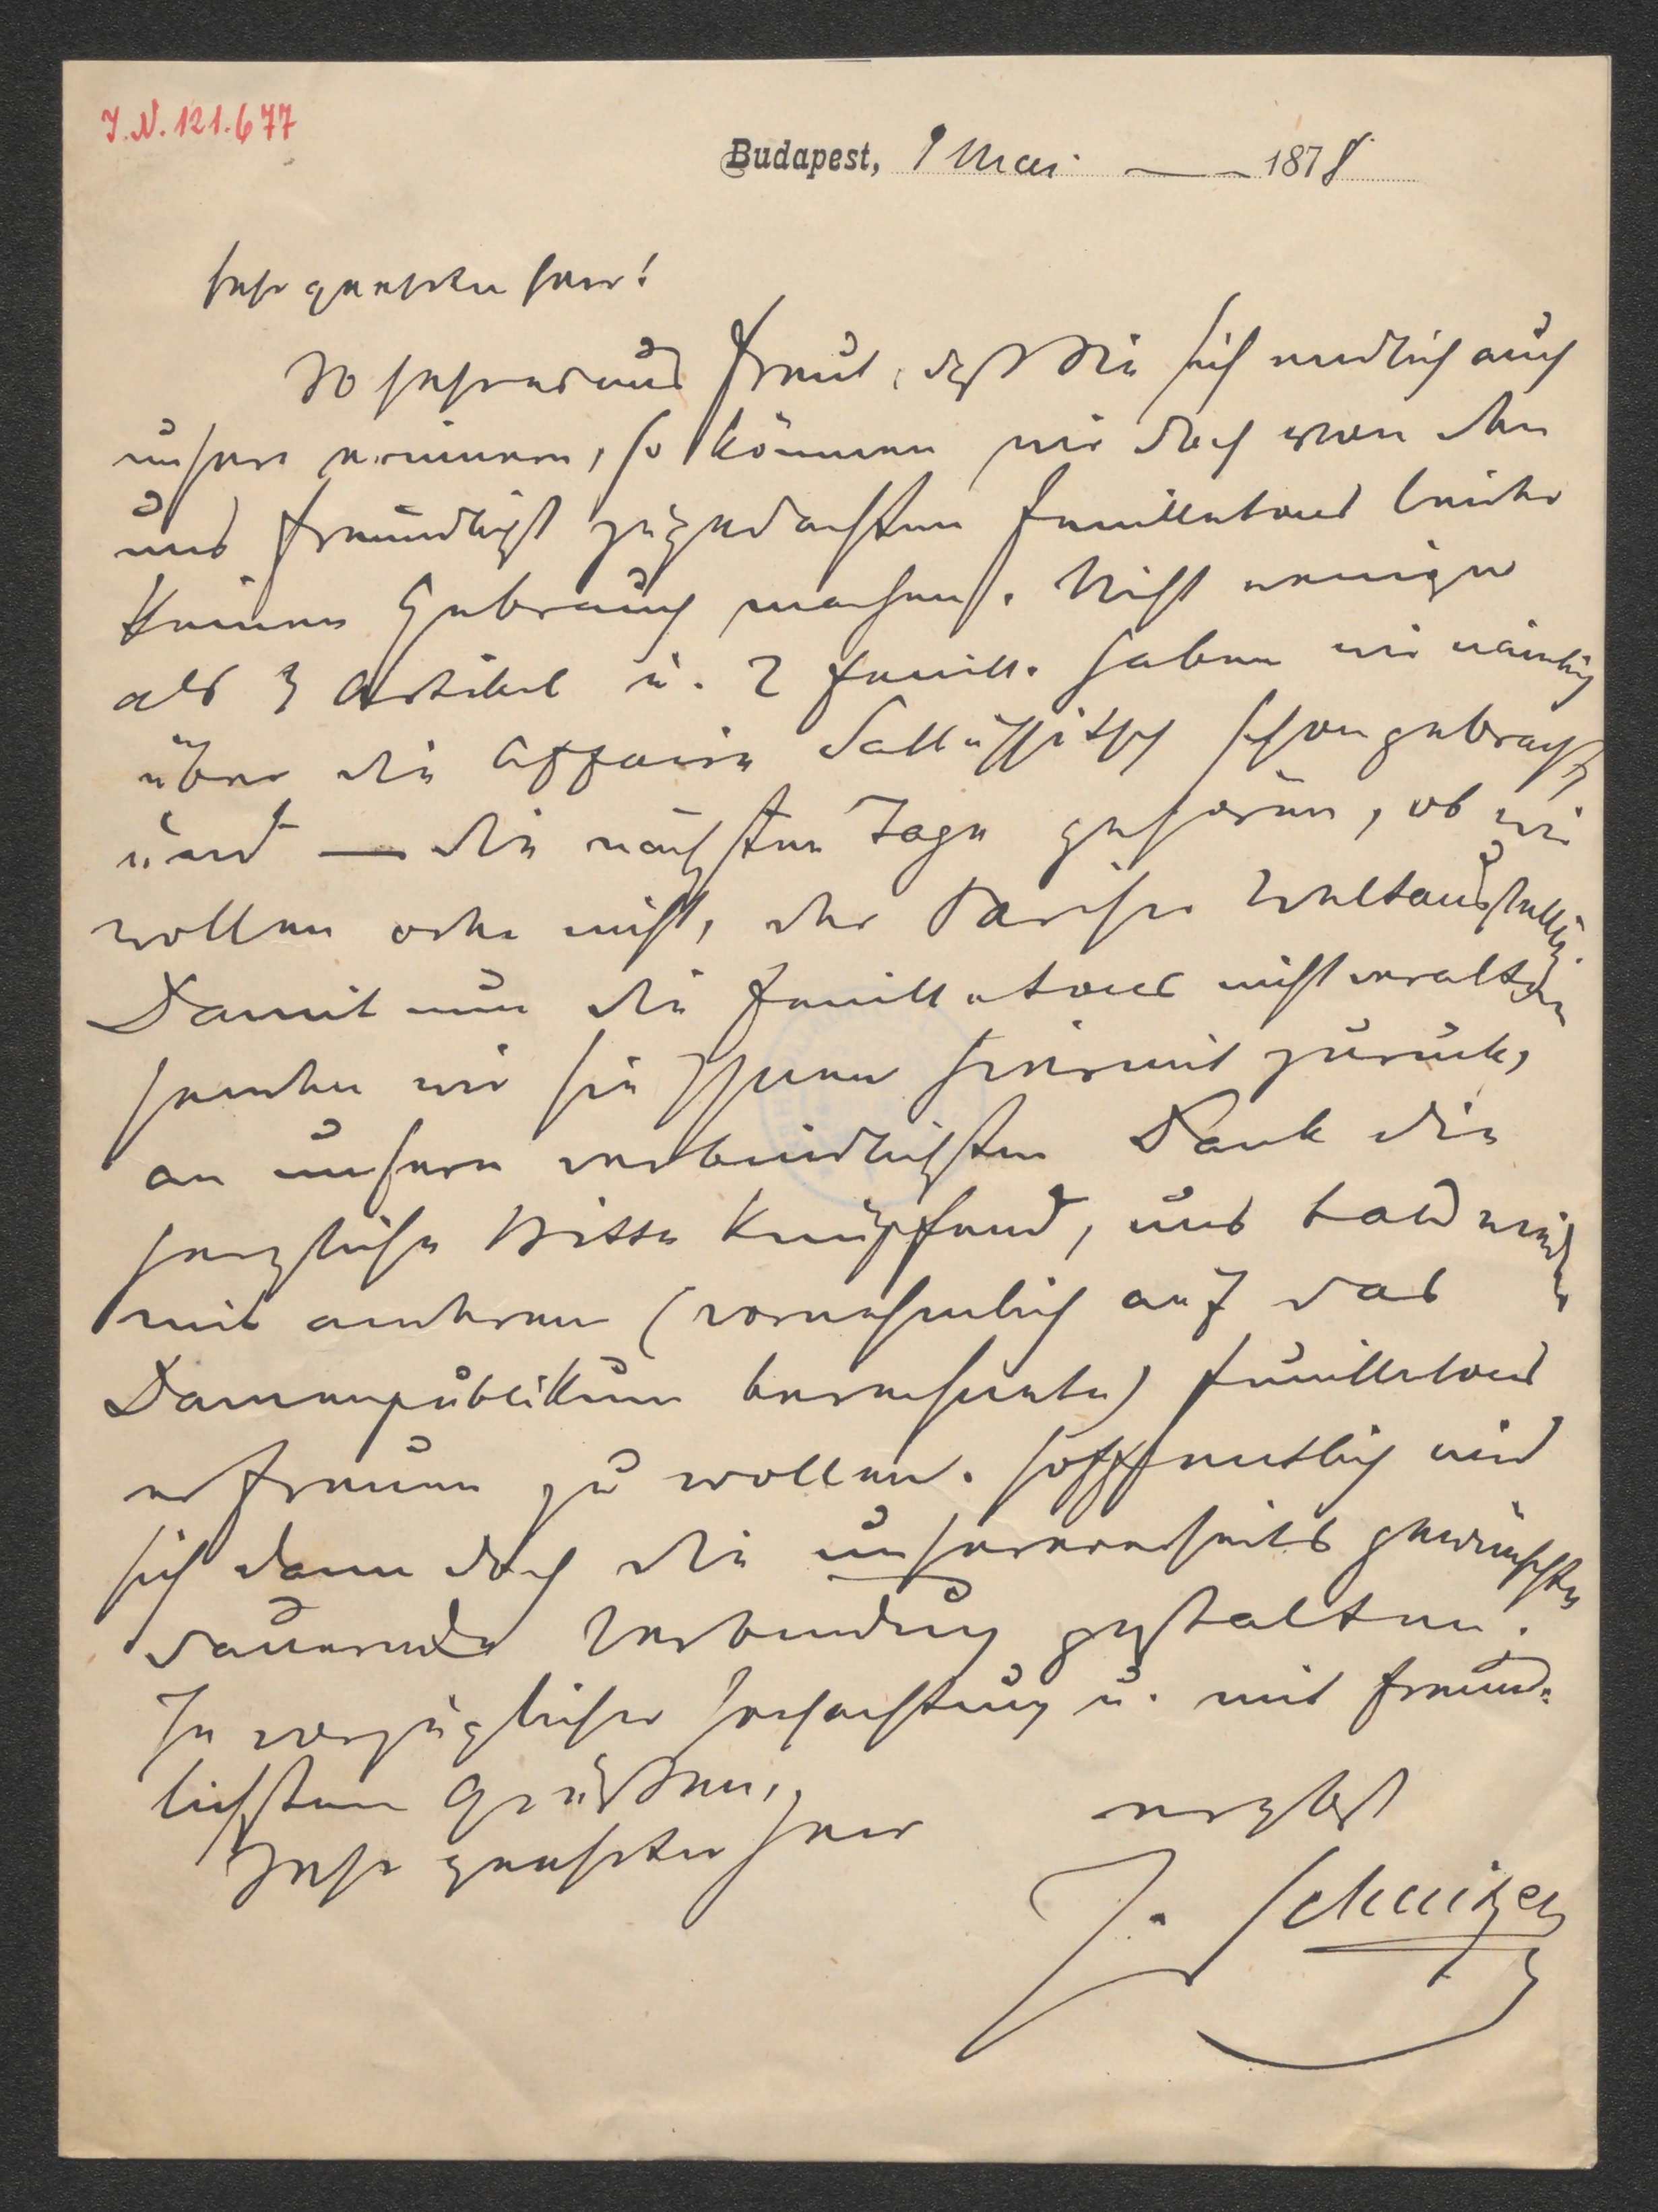 J.N. 121.677
Budapest, 9 Mai 1878
Sehr geehrter Herr!
So sehr es uns freut, daß Sie sich endlich auch
unser erinnern, so können wir doch von den
uns freundlichst zugedachten Feuilletons leider
keinen Gebrauch machen. Nicht weniger
als 3 Artikel u. 2 Feuill. haben wir nämlich
über die Affaire schon gebracht,
und — die nächsten Tage gehören, ob wir
wollen oder nicht, der Pariser Weltausstellg.
Damit nun die Feuilletons nicht veralten
senden wir sie Ihnen hiermit zurück,
an unseren verbindlichsten Dank die
herzliche Bitte knüpfend, uns bald wieder
mit anderen (vornehmlich auf das
Damenpublikum berechnete) Feuilletons
erfreuen zu wollen. Hoffentlich wird
sich dann doch die unsererseits gewünschte
dauernde Verbindung gestalten.
In vorzüglicher Hochachtung u. mit freund-
lichsten Grüßen,
Sehr geehrter Herr
ergbst
J.